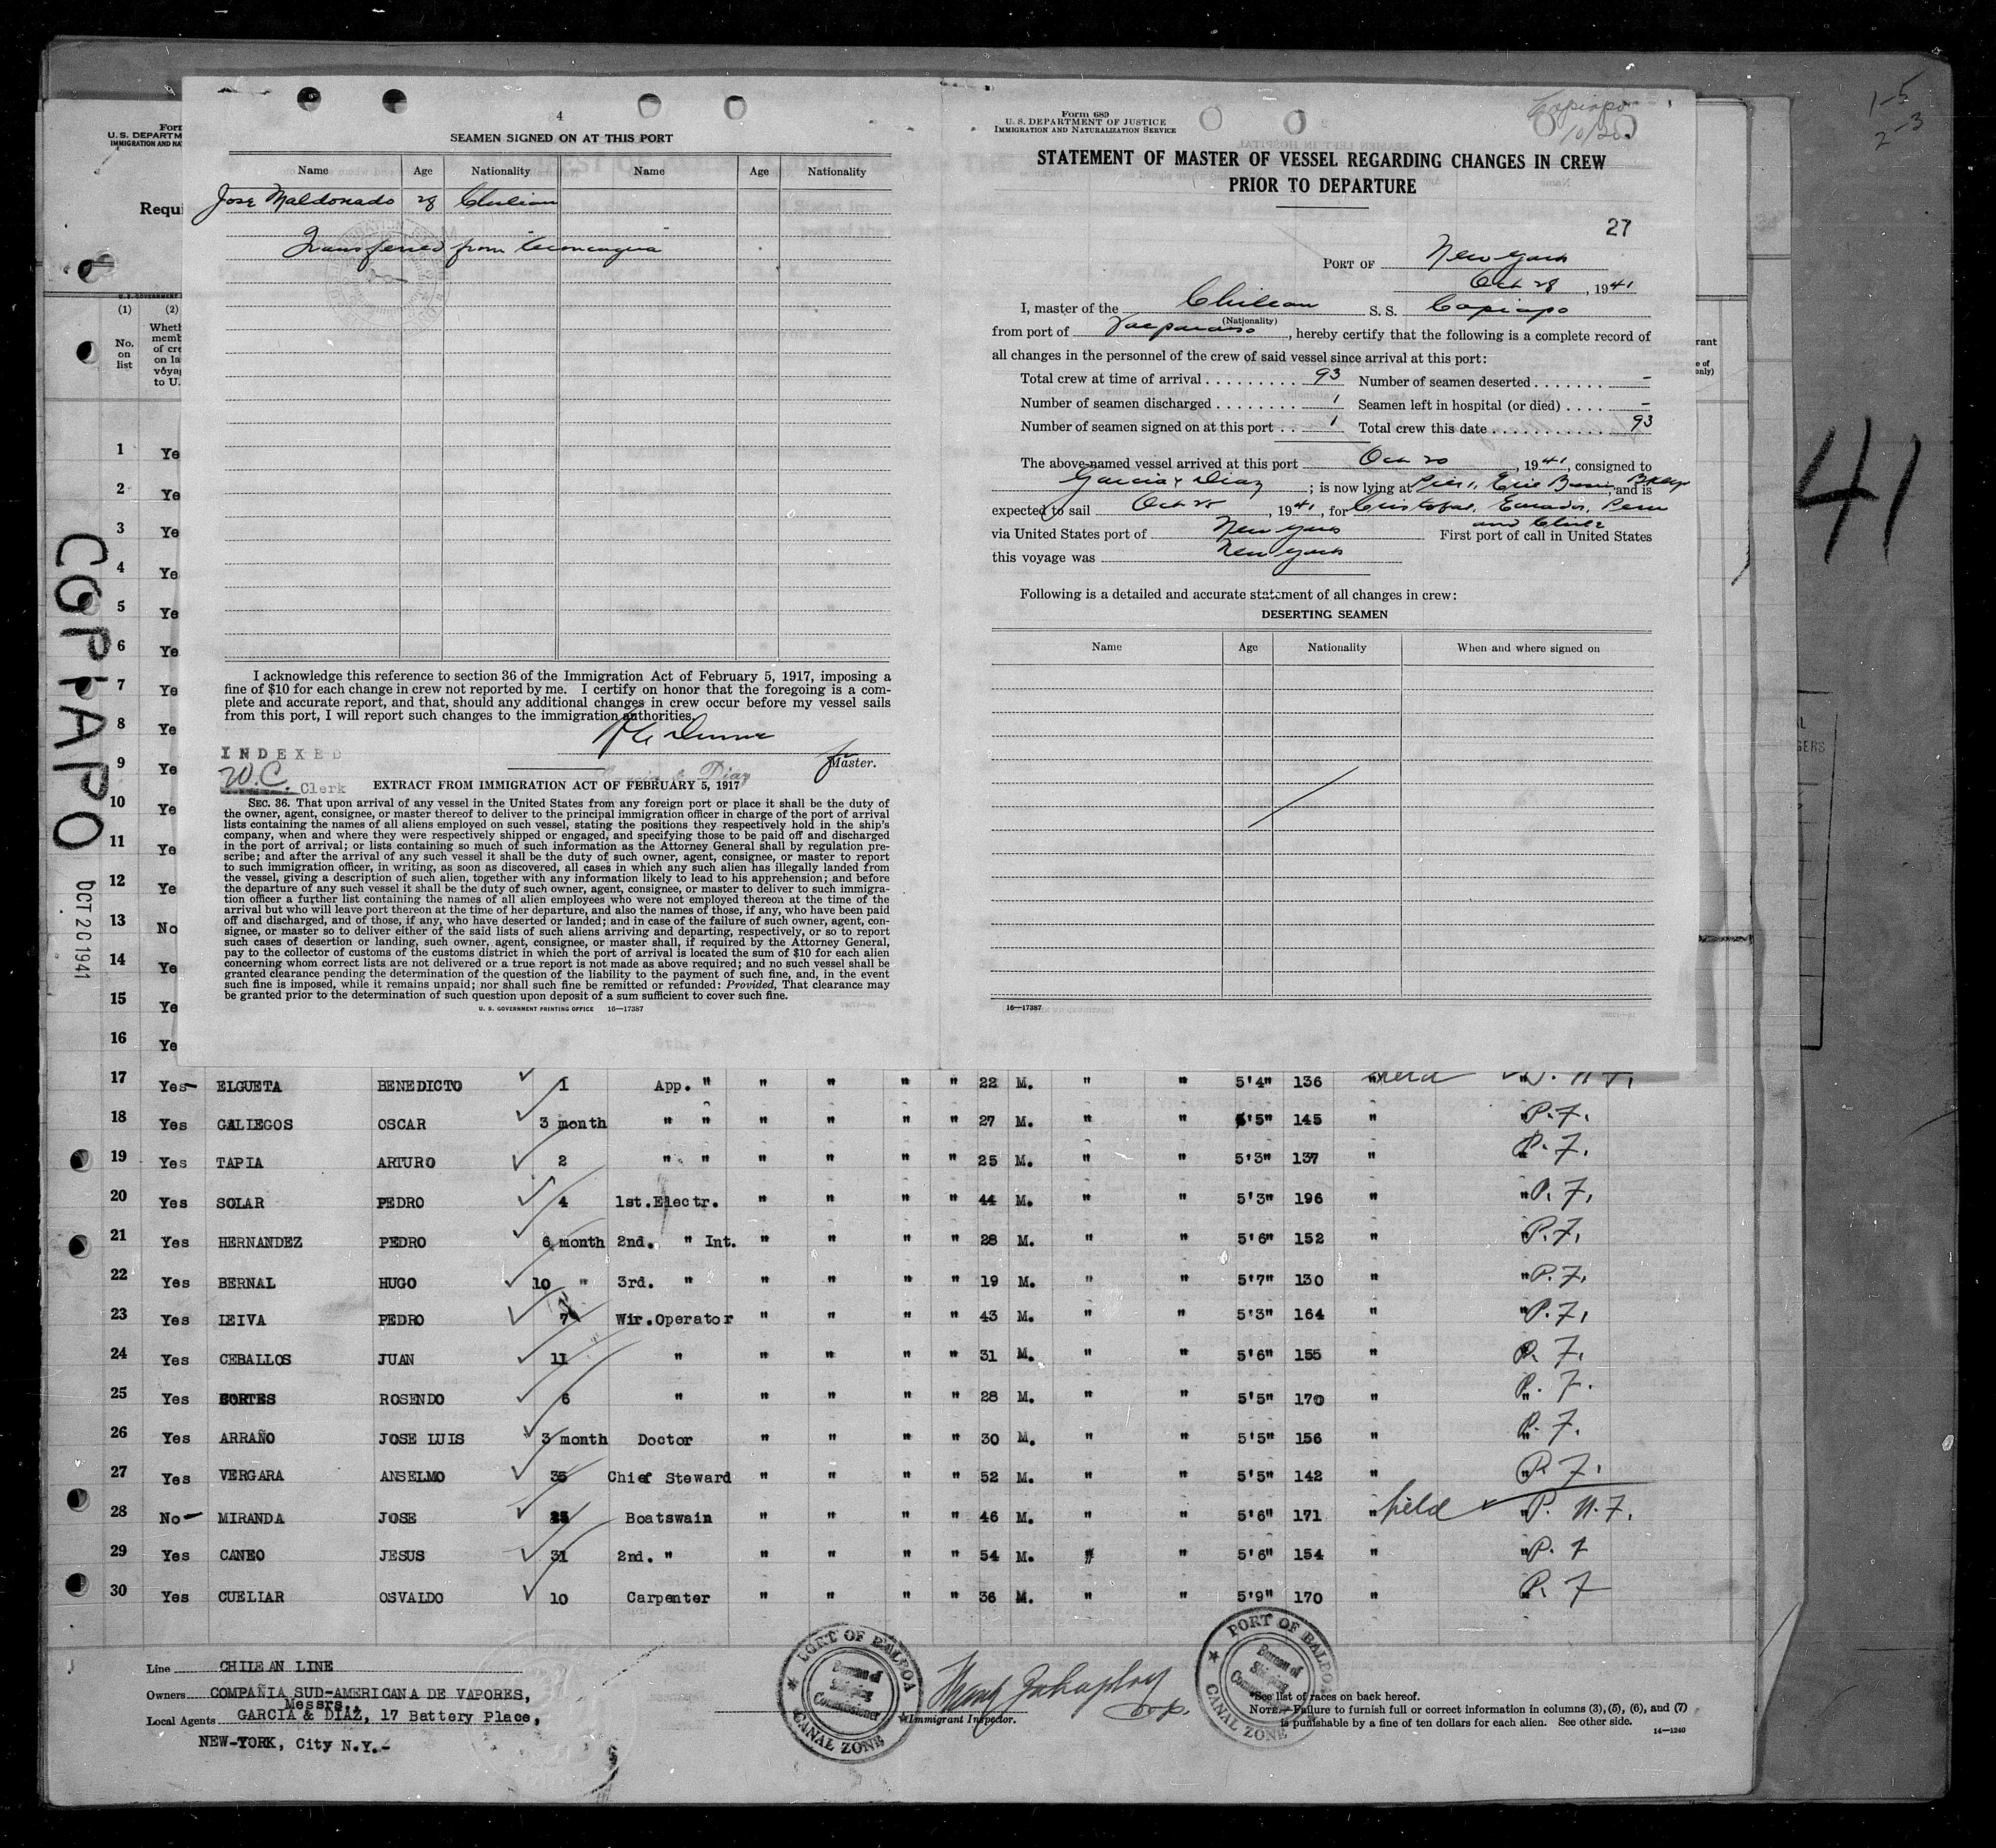 4
SEAMEN SIGNED ON AT THIS PORT
Name Age Nationality Name Age Nationality
Jose Maldonado 28 Chilean
Transferred from Aconcagua
I acknowledge this reference to section 36 of the Immigration Act of February 5, 1917, imposing a
fine of $10 for each change in crew not reported by me. I certify on honor that the foregoing is a com-
plete and accurate report, and that, should any additional changes in crew occur before my vessel sails
from this port, I will report such changes to the immigration authorities.
for Master.
INDEXED
W.C. Clerk
EXTRACT FROM IMMIGRATION ACT OF FEBRUARY 5, 1917
SEC. 36. That upon arrival of any vessel in the United States from any foreign port or place it shall be the duty of
the owner, agent, consignee, or master thereof to deliver to the principal immigration officer in charge of the port of arrival
lists containing the names of all aliens employed on such vessel, stating the positions they respectively hold in the ship's
company, when and where they were respectively shipped or engaged, and specifying those to be paid off and discharged
in the port of arrival; or lists containing so much of such information as the Attorney General shall by regulation pre-
scribe; and after the arrival of any such vessel it shall be the duty of such owner, agent, consignee, or master to report
to such immigration officer, in writing, as soon as discovered, all cases in which any such alien has illegally landed from
the vessel, giving a description of such alien, together with any information likely to lead to his apprehension; and before
the departure of any such vessel it shall be the duty of such owner, agent, consignee, or master to deliver to such immigra-
tion officer a further list containing the names of all alien employees who were not employed thereon at the time of the
arrival but who will leave port thereon at the time of her departure, and also the names of those, if any, who have been paid
off and discharged, and of those, if any, who have deserted or landed; and in case of the failure of such owner, agent, con-
signee, or master so to deliver either of the said lists of such aliens arriving and departing, respectively, or so to report
such cases of desertion or landing, such owner, agent, consignee, or master shall, if required by the Attorney General,
pay to the collector of customs of the customs district in which the port of arrival is located the sum of $10 for each alien
concerning whom correct lists are not delivered or a true report is not made as above required; and no such vessel shall be
granted clearance pending the determination of the question of the liability to the payment of such fine, and, in the event
such fine is imposed, while it remains unpaid; nor shall such fine be remitted or refunded: Provided, That clearance may
be granted prior to the determination of such question upon deposit of a sum sufficient to cover such fine.
U. S. GOVERNMENT PRINTING OFFICE 16—17387
Form 689
U. S. DEPARTMENT OF JUSTICE
IMMIGRATION AND NATURALIZATION SERVICE
Copiapo
10/20
STATEMENT OF MASTER OF VESSEL REGARDING CHANGES IN CREW
PRIOR TO DEPARTURE
27
PORT OF New York
Oct 28, 1941
I, master of the Chilean S. S. Copiapo
(Nationality)
from port of Valparaiso, hereby certify that the following is a complete record of
all changes in the personnel of the crew of said vessel since arrival at this port:
Total crew at time of arrival 93 Number of seamen deserted -
Number of seamen discharged 1 Seamen left in hospital (or died) -
Number of seamen signed on at this port 1 Total crew this date 93
The above-named vessel arrived at this port Oct 20, 1941, consigned to
Garcia & Diaz; is now lying at Pier 1, Erie Basin, Bklyn, and is
expected to sail Oct 28, 1941, for Cristobal, Ecuador, Peru
and Chile
via United States port of New York First port of call in United States
this voyage was New York
Following is a detailed and accurate statement of all changes in crew:
DESERTING SEAMEN
Name Age Nationality When and where signed on
16—17387
1-5
2-3
41
COPIAPO
OCT 20 1941
Form
U. S. DEPARTM
IMMIGRATION AND NA
Requi
U. S. GOVERNMENT
(1) (2)
No. on list
Wheth
memb
of cre
on la
voyag
to U.
1 Ye
2 Ye
3 Ye
4 Ye
5 Ye
6 Ye
7 Ye
8 Ye
9 Ye
10 Ye
11 Ye
12 Ye
13 No
14 Ye
15 Ye
16 Ye
17 Yes- ELGUETA BENEDICTO 1 App. " " " " " 22 M. " " 5'4" 136 held
18 Yes GALLEGOS OSCAR 3 month " " " " " " 27 M. " " 5'5" 145 " P.F.
19 Yes TAPIA ARTURO 2 " " " " " " 25 M. " " 5'3" 137 " P.F.
20 Yes SOLAR PEDRO 4 1st.Electr. " " " " 44 M. " " 5'3" 196 " " P.F.
21 Yes HERNANDEZ PEDRO 6 month 2nd. " Int. " " " " 28 M. " " 5'6" 152 " P.F.
22 Yes BERNAL HUGO 10 " 3rd. " " " " " 19 M. " " 5'7" 130 " " P.F.
23 Yes LEIVA PEDRO 7 Wir.Operator " " " " 43 M. " " 5'3" 164 " " P.F.
24 Yes CEBALLOS JUAN 11 " " " " " 31 M. " " 5'6" 155 " P.F.
25 Yes CORTES ROSENDO 6 " " " " " 28 M. " " 5'5" 170 " P.F.
26 Yes ARRAÑO JOSE LUIS 3 month Doctor " " " " 30 M. " " 5'5" 156 " P.F.
27 Yes VERGARA ANSELMO 35 Chief Steward " " " " 52 M. " " 5'5" 142 " P.F.
28 No- MIRANDA JOSE 25 Boatswain " " " " 46 M. " " 5'6" 171 " held " P. N.F.
29 Yes CANEO JESUS 31 2nd. " " " " " 54 M. " " 5'6" 154 " " P.F
30 Yes CUELLAR OSVALDO 10 Carpenter " " " " 36 M. " " 5'9" 170 " P.F
Line CHILEAN LINE
Owners COMPAÑIA SUD-AMERICANA DE VAPORES,
Messrs.
Local Agents GARCIA & DIAZ, 17 Battery Place,
NEW-YORK, City N.Y.-
PORT OF BALBOA
Bureau of
Shipping
Commissioner
CANAL ZONE
Immigrant Inspector.
PORT OF BALBOA
Bureau of
Shipping
Commissioner
CANAL ZONE
*See list of races on back hereof.
NOTE.—Failure to furnish full or correct information in columns (3), (5), (6), and (7)
is punishable by a fine of ten dollars for each alien. See other side.
14—1240